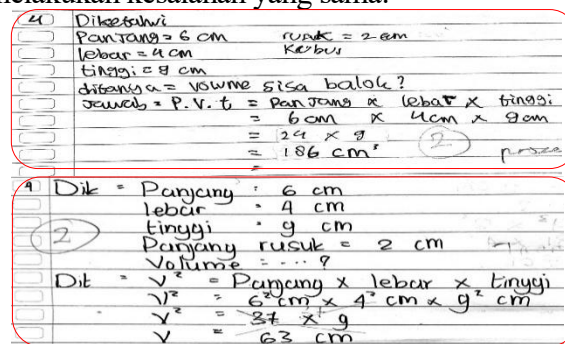 melakukan kesalahan yang sama.
4 Diketahui
Panjang = 6 cm rusuk = 2 cm
lebar = 4 cm Kubus
tinggi = 9 cm
ditanya = volume sisa balok?
Jawab = P.V.t = Panjang x lebar x tinggi
= 6 cm x 4 cm x 9 cm
= 24 x 9
= 186 cm³ 2
=
4 Dik = Panjang : 6 cm
lebar : 4 cm
tinggi : 9 cm
2 Panjang rusuk = 2 cm
Volume = .... ?
Dit = V² = Panjang x lebar x tinggi
V² = 6² cm x 4² cm x 9² cm
V² = 37 x 9
V = 63 cm